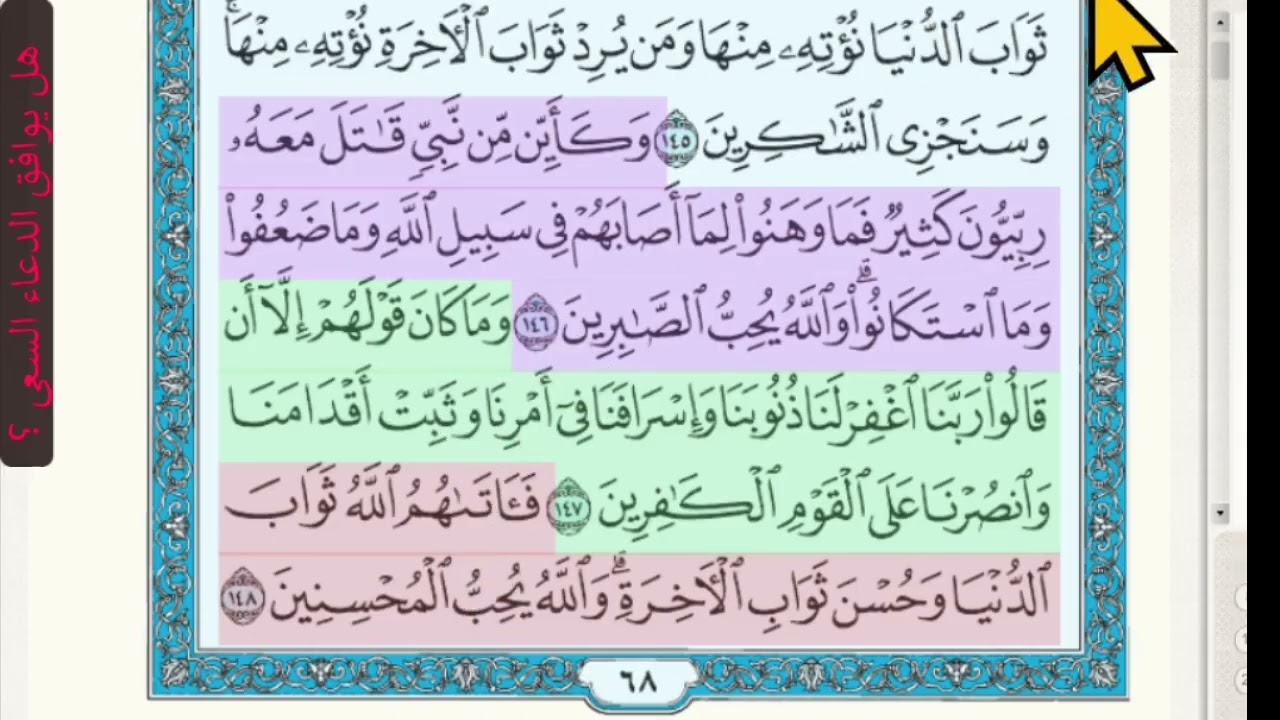 ثَوَابَ ٱلدُّنْيَا نُؤْتِهِۦ مِنْهَا وَمَن يُرِدْ ثَوَابَ ٱلْأٓخِرَةِ نُؤْتِهِۦ مِنْهَا ۚ
وَسَنَجْزِى ٱلشَّٰكِرِينَ ١٤٥ وَكَأَيِّن مِّن نَّبِىٍّ قَٰتَلَ مَعَهُۥ
رِبِّيُّونَ كَثِيرٌ فَمَا وَهَنُوا۟ لِمَآ أَصَابَهُمْ فِى سَبِيلِ ٱللَّهِ وَمَا ضَعُفُوا۟
وَمَا ٱسْتَكَانُوا۟ ۗ وَٱللَّهُ يُحِبُّ ٱلصَّٰبِرِينَ ١٤٦ وَمَا كَانَ قَوْلَهُمْ إِلَّآ أَن
قَالُوا۟ رَبَّنَا ٱغْفِرْ لَنَا ذُنُوبَنَا وَإِسْرَافَنَا فِىٓ أَمْرِنَا وَثَبِّتْ أَقْدَامَنَا
وَٱنصُرْنَا عَلَى ٱلْقَوْمِ ٱلْكَٰفِرِينَ ١٤٧ فَـَٔاتَىٰهُمُ ٱللَّهُ ثَوَابَ
ٱلدُّنْيَا وَحُسْنَ ثَوَابِ ٱلْأٓخِرَةِ ۗ وَٱللَّهُ يُحِبُّ ٱلْمُحْسِنِينَ ١٤٨
٦٨
هل يوافق الدعاء السعى ؟